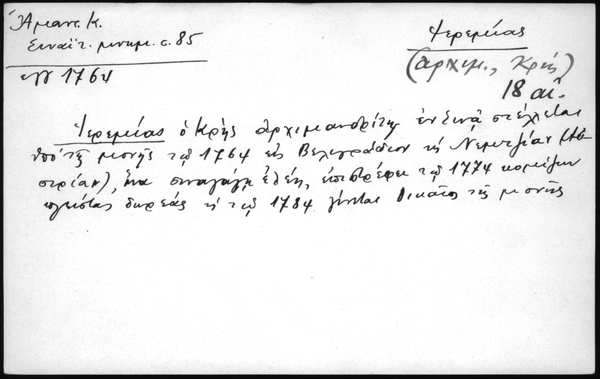 Ἀμαντ. Κ.
Σιναϊτ. μνημ. σ. 85
ἐν 1764
Ἱερεμίας
(ἀρχιμ., Κρής)
18 αἰ.
Ἱερεμίας ὁ Κρὴς ἀρχιμανδρίτης ἐν Σινᾷ στέλλεται
ὑπὸ τῆς μονῆς τῷ 1764 εἰς Βελιγράδιον καὶ Νεμτζίαν (Αὐ
στρίαν), ἵνα συναγάγῃ ἐλέη, ἐπιστρέφει τῷ 1774 κομίζων
πλείστας δωρεάς καὶ τῷ 1784 γίνεται Δικαῖος τῆς μονῆς